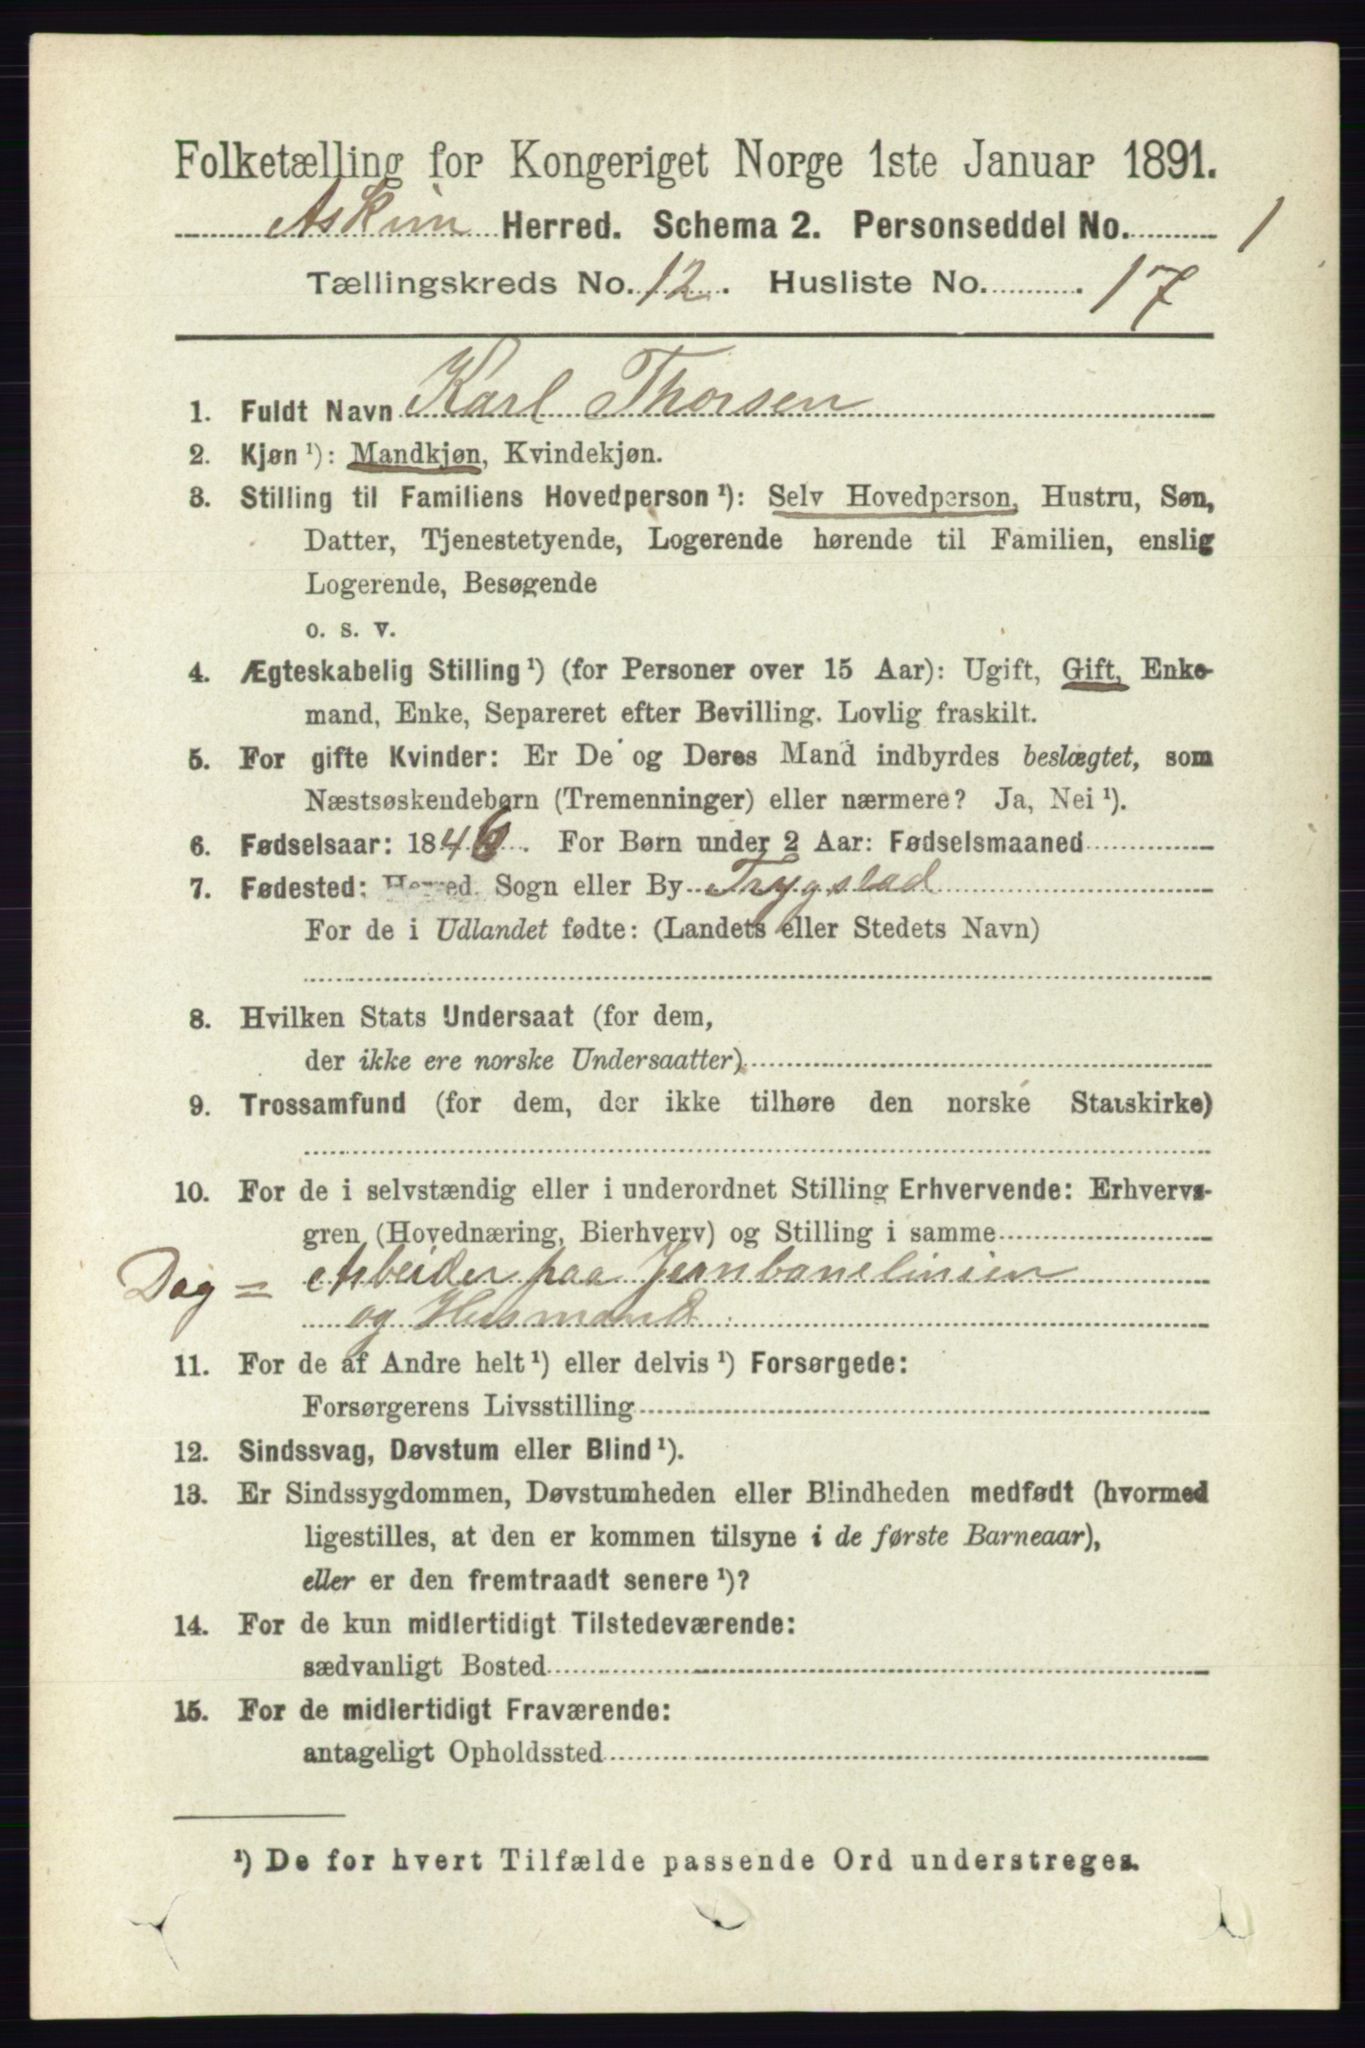 Folketælling for Kongeriget Norge 1ste Januar 1891.
Askim Herred. Schema 2. Personseddel No. 1
Tællingskreds No. 12. Husliste No. 17
1. Fuldt Navn Karl Thorsen
2. Kjøn¹): Mandkjøn, Kvindekjøn.
3. Stilling til Familiens Hovedperson¹): Selv Hovedperson, Hustru, Søn,
Datter, Tjenestetyende, Logerende hørende til Familien, enslig
Logerende, Besøgende
o. s. v.
4. Ægteskabelig Stilling¹) (for Personer over 15 Aar): Ugift, Gift, Enke-
mand, Enke, Separeret efter Bevilling. Lovlig fraskilt.
5. For gifte Kvinder: Er De og Deres Mand indbyrdes beslægtet, som
Næstsøskendebørn (Tremenninger) eller nærmere? Ja, Nei¹).
6. Fødselsaar: 1846. For Børn under 2 Aar: Fødselsmaaned
7. Fødested: Herred, Sogn eller By Trygstad
For de i Udlandet fødte: (Landets eller Stedets Navn)
8. Hvilken Stats Undersaat (for dem,
der ikke ere norske Undersaatter)
9. Trossamfund (for dem, der ikke tilhøre den norske Statskirke)
10. For de i selvstændig eller i underordnet Stilling Erhvervende: Erhvervs-
gren (Hovednæring, Bierhverv) og Stilling i samme
Dag = Arbeider paa Jernbanelinien
og Husmand
11. For de af Andre helt¹) eller delvis¹) Forsørgede:
Forsørgerens Livsstilling
12. Sindssvag, Døvstum eller Blind¹).
13. Er Sindssygdommen, Døvstumheden eller Blindheden medfødt (hvormed
ligestilles, at den er kommen tilsyne i de første Barneaar),
eller er den fremtraadt senere¹)?
14. For de kun midlertidigt Tilstedeværende:
sædvanligt Bosted
15. For de midlertidigt Fraværende:
antageligt Opholdssted
¹) De for hvert Tilfælde passende Ord understreges.